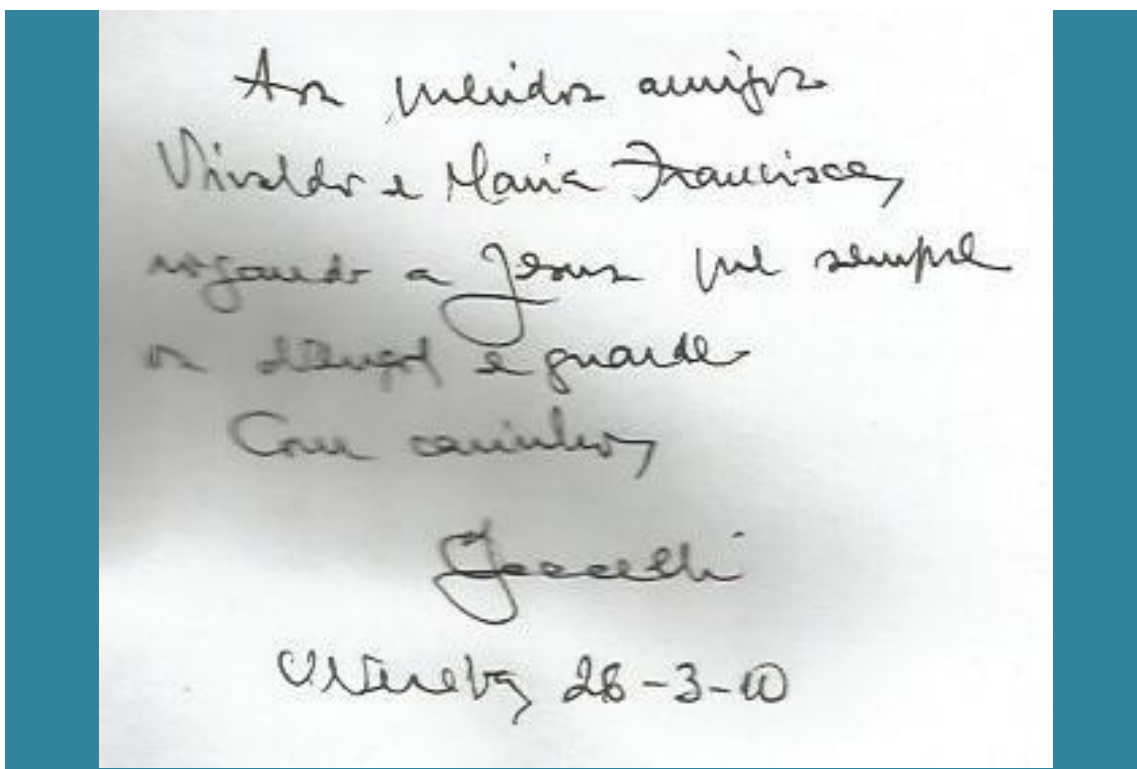 Aos queridos amigos
Vivaldo e Maria Francisca,
rogando a Jesus que sempre
os abençoe e guarde
Com carinho,
Uberaba, 26-3-10